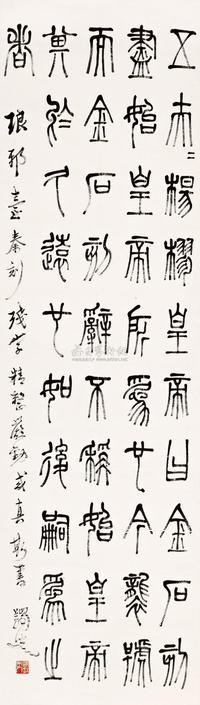 五夫＝楊樛皇帝曰金石刻
盡始皇帝所為也今襲號
而金石刻辭不稱始皇帝
其於久遠也如後嗣為之
者
琅邪臺秦刻殘字精整嚴勁或真斯書 蠲叟